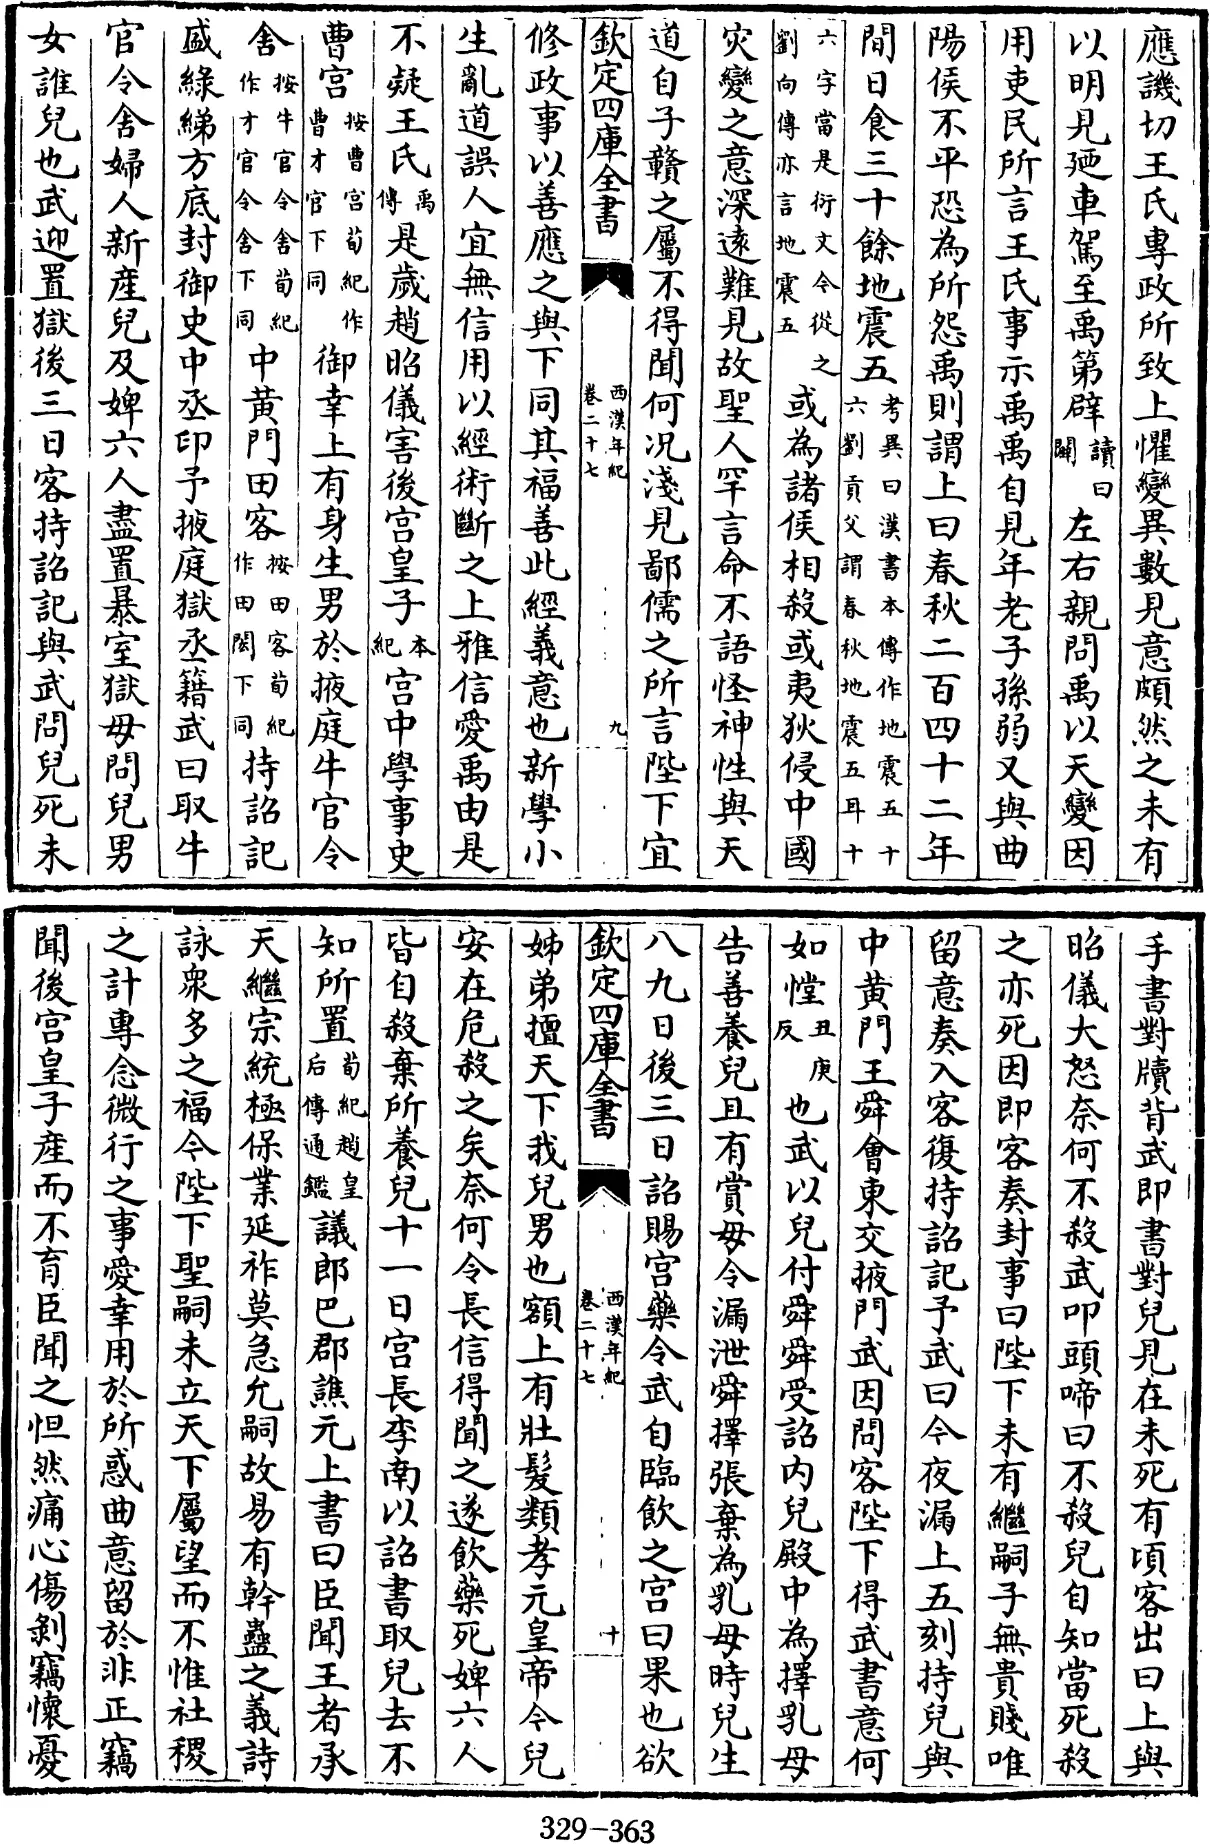 應譏切王氏專政所致上懼變異數見意頗然之未有
以明見廼車駕至禹第辟讀曰闢左右親問禹以天變因
用吏民所言王氏事示禹禹自見年老子孫弱又與曲
陽侯不平恐為所怨禹則謂上曰春秋二百四十二年
間日食三十餘地震五考異曰漢書本傳作地震五十六劉貢父謂春秋地震五耳十
六字當是衍文今從之劉向傳亦言地震五或為諸侯相殺或夷狄侵中國
灾變之意深遠難見故聖人罕言命不語怪神性與天
道自子贛之屬不得聞何況淺見鄙儒之所言陛下宜
欽定四庫全書 西漢年紀卷二十七 九
修政事以善應之與下同其福善此經義意也新學小
生亂道誤人宜無信用以經術斷之上雅信愛禹由是
不疑王氏禹傳是歲趙昭儀害後宫皇子本紀宫中學事史
曹宫按曹宫荀紀作曹才官下同御幸上有身生男於掖庭牛官令
舍按牛官令舍荀紀作才官令舍下同中黄門田客按田客荀紀作田閎下同持詔記
盛綠綈方底封御史中丞印予掖庭獄丞籍武曰取牛
官令舍婦人新産兒及婢六人盡置暴室獄毋問兒男
女誰兒也武迎置獄後三日客持詔記與武問兒死未
手書對牘背武即書對兒見在未死有頃客出曰上與
昭儀大怒奈何不殺武叩頭啼曰不殺兒自知當死殺
之亦死因即客奏封事曰陛下未有繼嗣子無貴賤唯
留意奏入客復持詔記予武曰今夜漏上五刻持兒與
中黄門王舜會東交掖門武因問客陛下得武書意何
如憆丑庚反也武以兒付舜舜受詔内兒殿中為擇乳母
告善養兒且有賞毋令漏泄舜擇張棄為乳母時兒生
八九日後三日詔賜宫藥令武自臨飲之宫曰果也欲
欽定四庫全書 西漢年紀卷二十七 十
姊弟擅天下我兒男也額上有壯髮類孝元皇帝今兒
安在危殺之矣奈何令長信得聞之遂飲藥死婢六人
皆自殺棄所養兒十一日宫長李南以詔書取兒去不
知所置荀紀趙皇后傳通鑑議郎巴郡譙元上書曰臣聞王者承
天繼宗統極保業延祚莫急允嗣故易有幹蠱之義詩
詠衆多之福今陛下聖嗣未立天下屬望而不惟社稷
之計專念微行之事愛幸用於所惑曲意留於非正竊
聞後宫皇子産而不育臣聞之怛然痛心傷剝竊懷憂
329-363